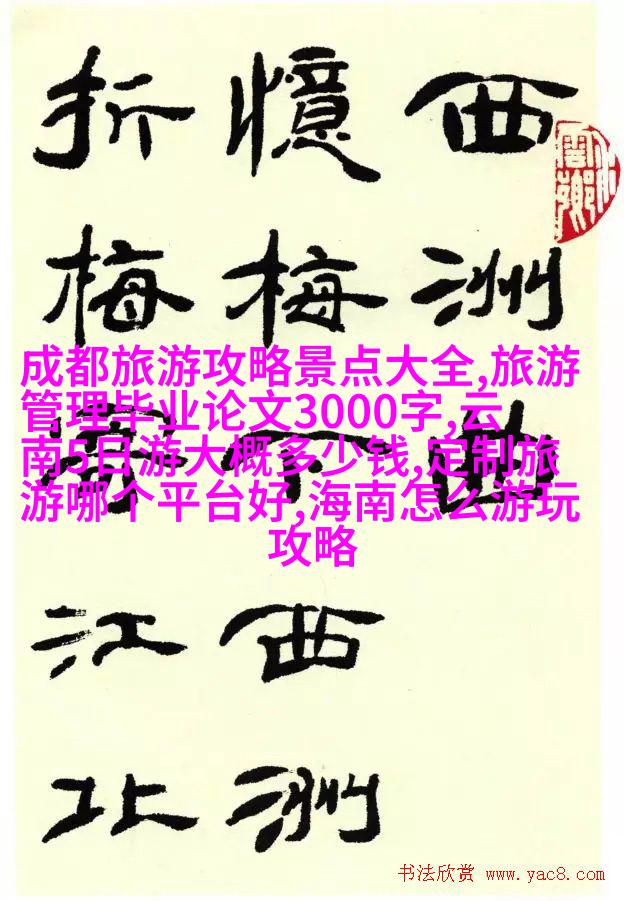 西洲曲
憶梅下西洲
折梅寄江北
成都旅游攻略景点大全,旅游
管理毕业论文3000字,云
南5日游大概多少钱,定制旅
游哪个平台好,海南怎么游玩
攻略
书法欣赏 www.yac8.com